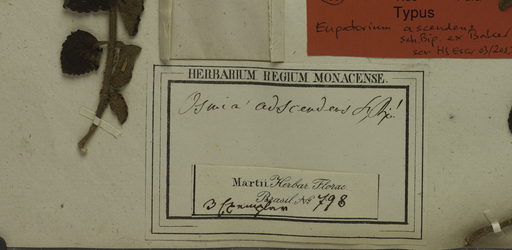 Typus
Eupatorium ascendens
Sch. Bip. ex Baker
HERBARIUM REGIUM MONACENSE.
Osmia adscendens
Martii Herbar. Florae
Brasil. No 798
3 Exemplar